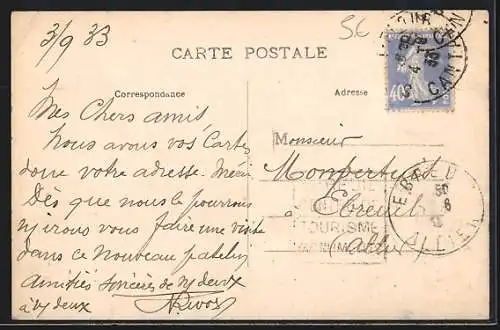 3/9 33
56
CARTE POSTALE
Correspondance
Adresse
40c
CANTAL
Mes Chers amis
Nous avons vos Cartes
donc votre adresse. Merci
Dès que nous le pourrons
irons vous faire une visite
dans ce Nouveau patelin
Amitiés sincères de deux
à deux
Monsieur
à Ebreuil
(Allier)
TOURISME
EBREUIL
ALLIER